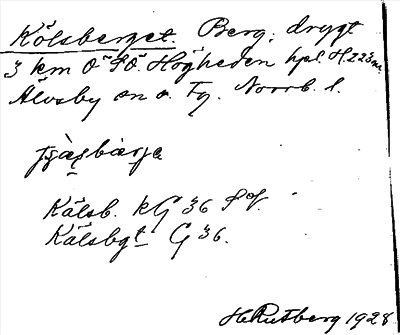 Kölsberget. Berg, drygt
3 km Ö SÖ. Högheden hpl. H. 223 m.
Älvsby sn o. Tg. Norrb. l.
Kälsb. kG 36 SOf.
Kälsbgt G 36.
H. Rutberg 1928